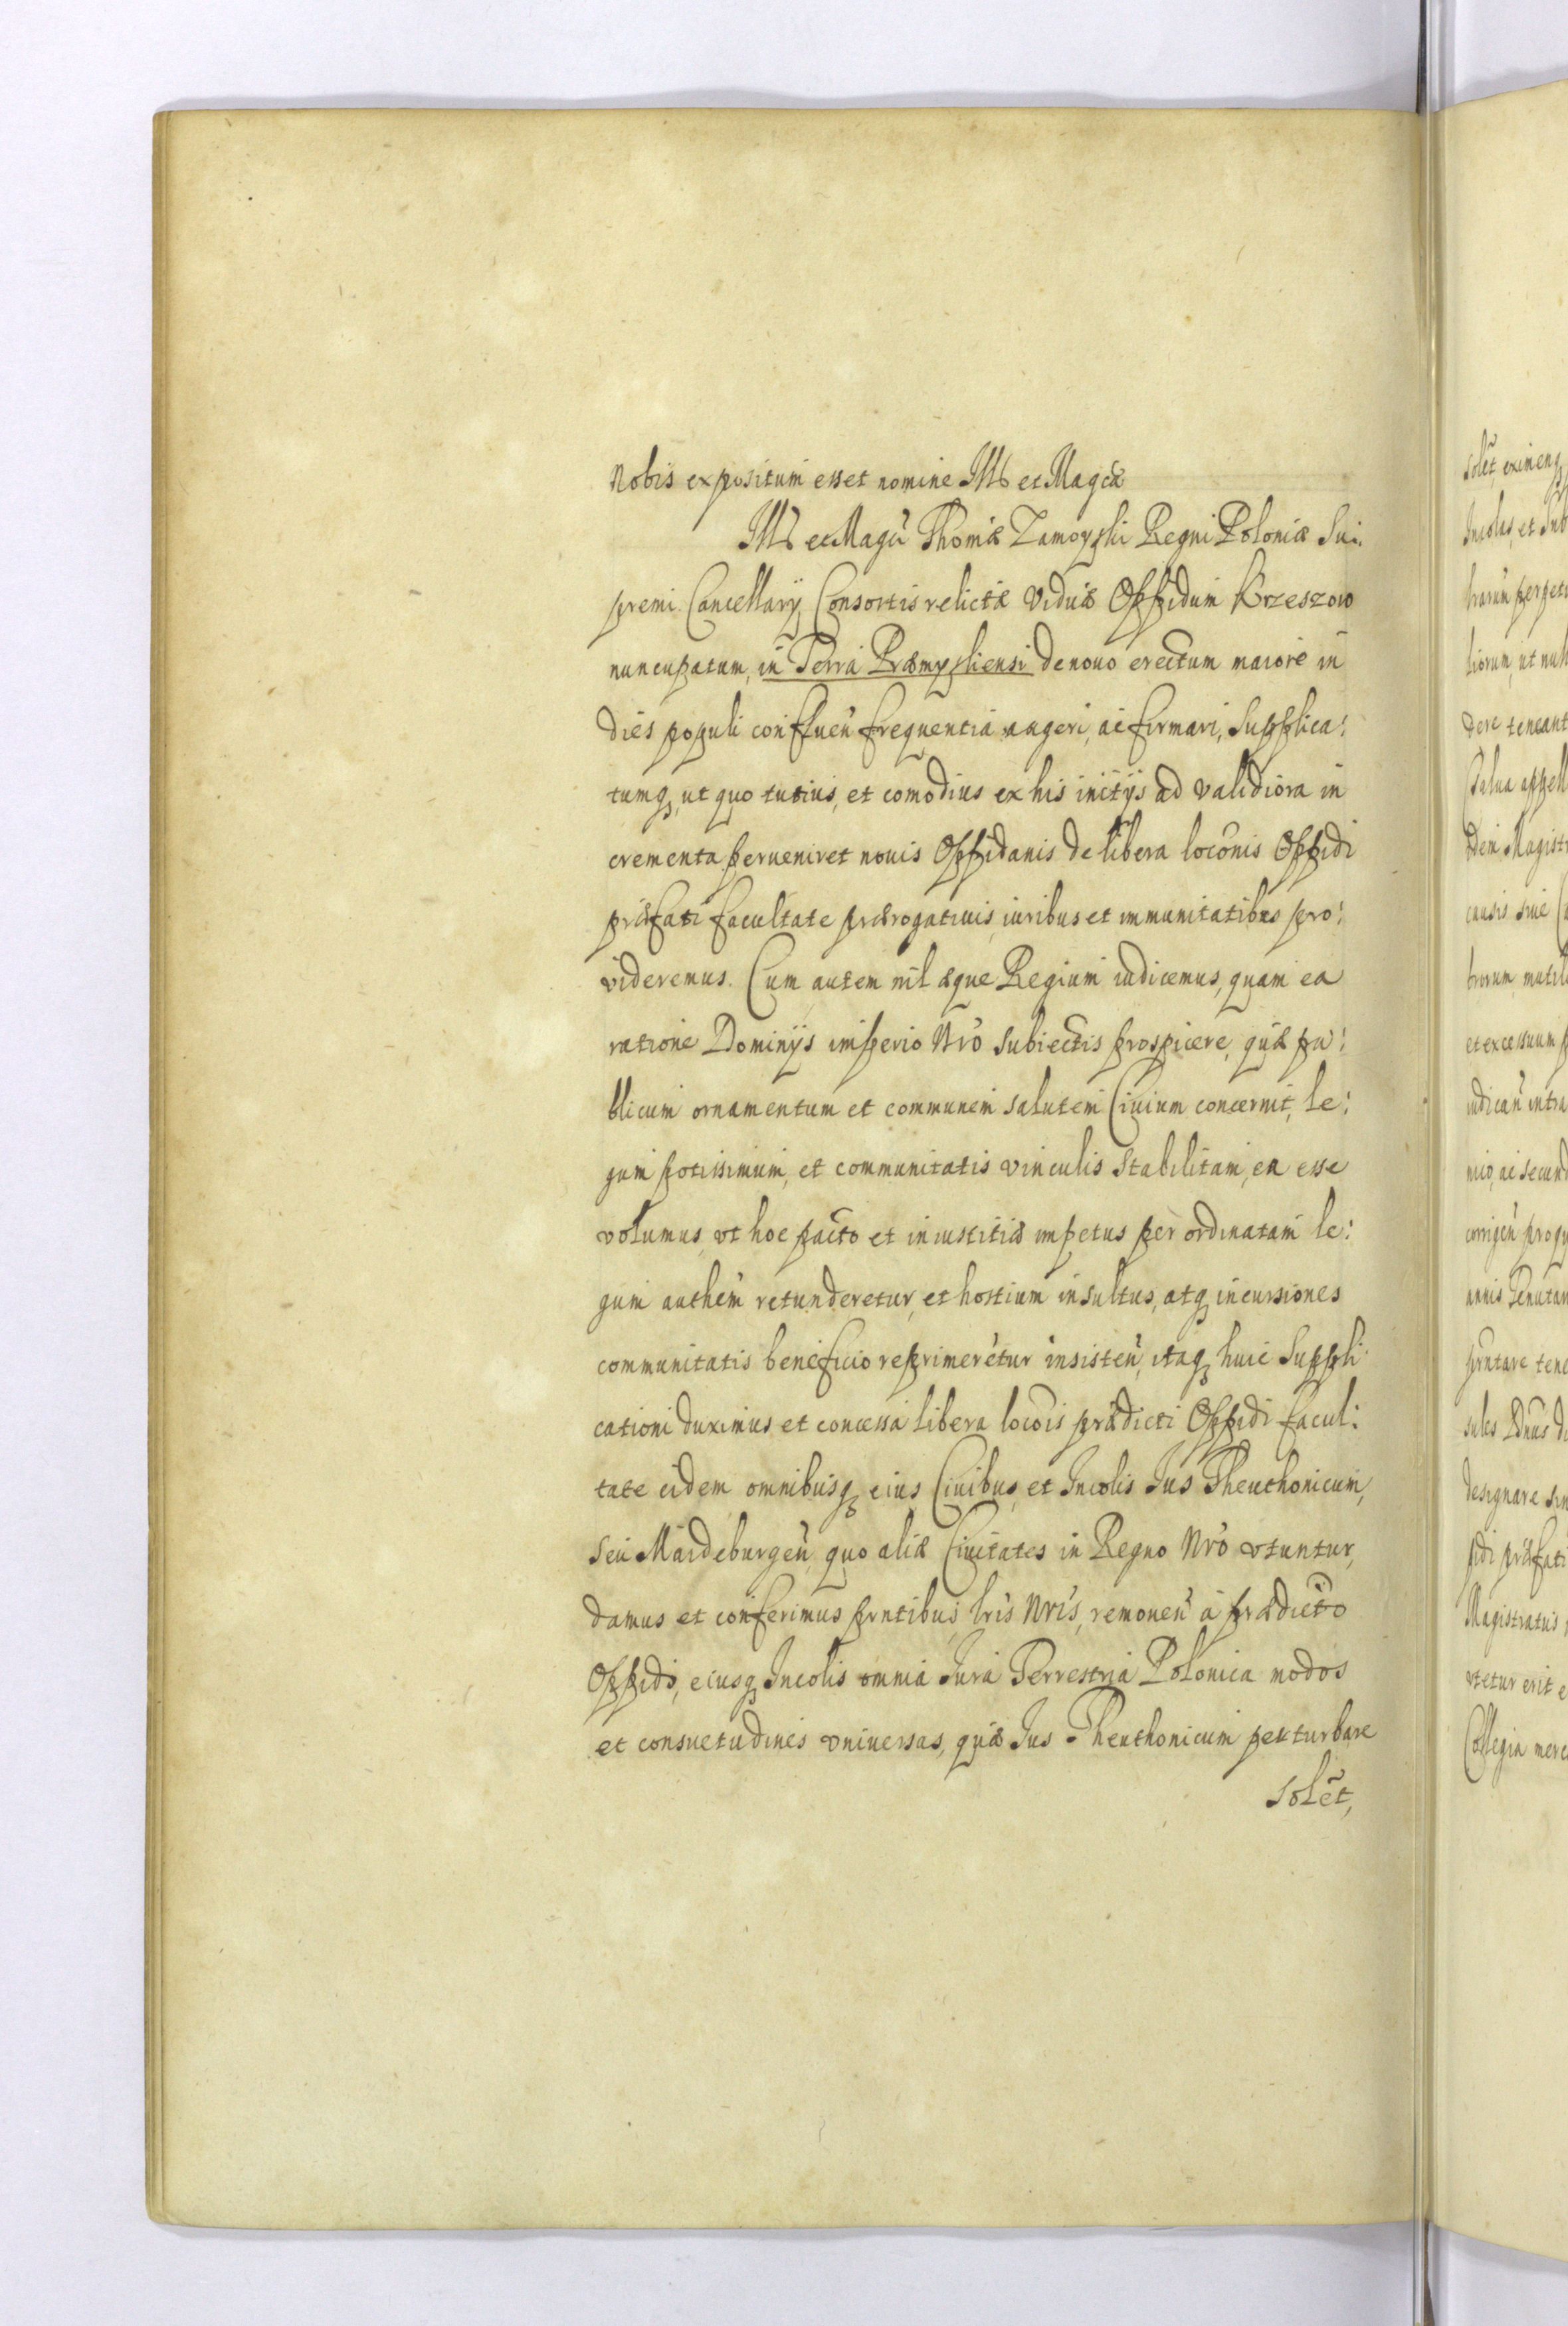 Nobis expositum esset nomine Ill͠s et Magcæ
Ill͠s et Magci Thomæ Zamoyski Regni Poloniæ Su:
premi Cancellarij Consortis relictæ Viduæ Oppidum Krzeszow
nuncupatum, in Terra Præmysliensi de nouo erectum maiore in
dies populi confluen̄ frequentia augeri, ac firmari, Supplica:
tumq, ut quo tutius, et comodius ex his initijs ad validiora in
crementa perueniret nouis Oppidanis de libera loco͠nis Oppidi
præfati facultate prærogatiuis, iuribus et immunitatibus pro:
videremus. Cum autem nil æque Regium iudicemus, quam ea
ratione Dominijs imperio Nr̄o subiectis prospicere, quæ pu:
blicum ornamentum et communem salutem Ciuium concernit, le:
gum potissimum, et communitatis vinculis stabilitam, ea esse
volumus, vt hoc pacto et iniustitiæ impetus per ordinatam le:
gum authem̄ retunderetur, et hostium insultus, atq incursiones
communitatis beneficio reprimeretur insisten̄, itaq huic Suppli:
cationi duximus et concessa libera loco͠is prædicti Oppidi facul:
tate eidem omnibusq eius Ciuibus, et Incolis Ius Theuthonicum,
seu Maideburgen̄, quo aliæ Ciuitates in Regno Nr̄o vtuntur,
damus et conferimus prn̄tibus lr̄is Nr̄is, remouen̄ à prædicto
Oppido, eiusq Incolis omnia Iura Terrestria Polonica modos
et consuetudines vniuersas, quæ Ius Theuthonicum perturbare
solēt,
solēt, eximenq
Incolas, et Sub
harum perpetu
liorum, ut null
dere teneant
Salua appell
dem Magist
causis siue
brorum mutil
et excessuum p
iudican̄ intra
mio, ac secund
corrigen̄ prog
annis
prn̄tare tene
sules Dnus
designare sin
pidi præfati
Magistratus
vtetur erit e
Collegia merc